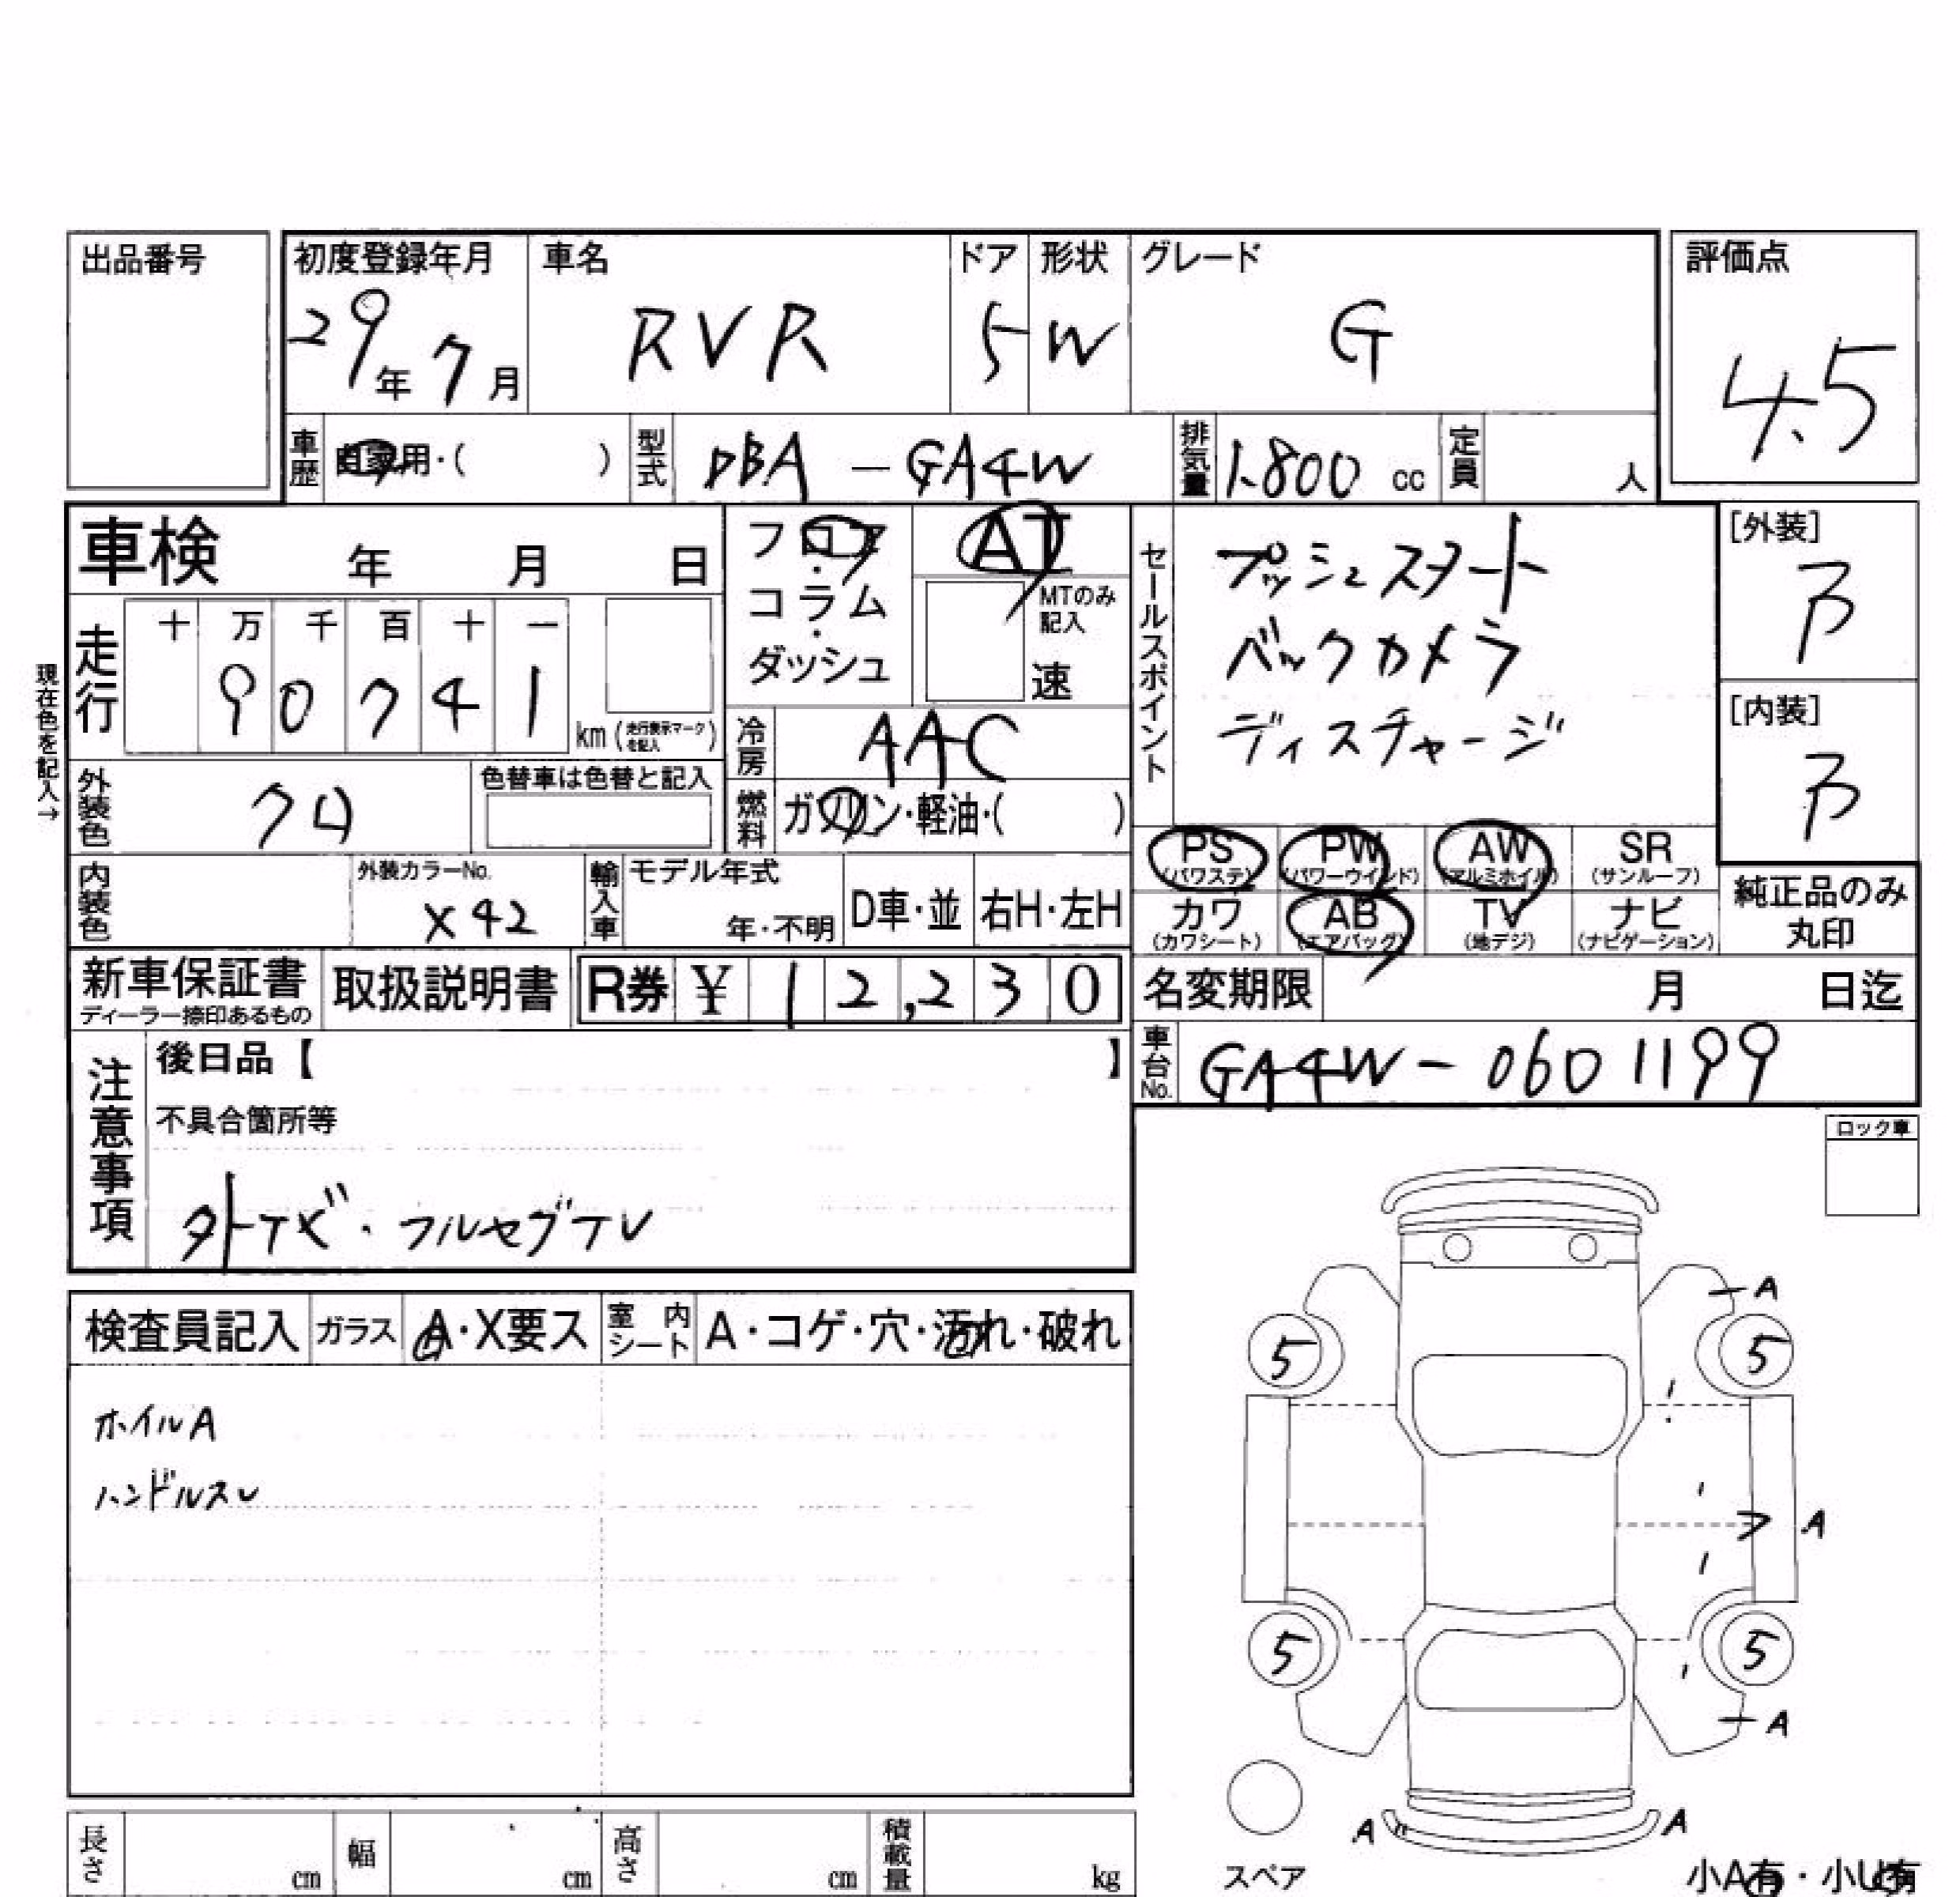 出品番号
初度登録年月 車名 ドア 形状 グレード 評価点
29年 7月 RVR 5 W G 4.5
車歴 自家用・( ) 型式 DBA - GA4W 排気量 1.800 cc 定員 人
車検 年 月 日
フロア・コラム・ダッシュ
AT
MTのみ記入
速
セールスポイント
プッシュスタート
バックカメラ
ディスチャージ
[外装]
B
[内装]
B
現在色を記入→
走行 十 万 千 百 十 一
9 0 7 4 1 km (走行表示マークを記入)
冷房 AAC
外装色 クロ 色替車は色替と記入
燃料 ガソリン・軽油・( )
PS (パワステ) PW (パワーウインド) AW (アルミホイル) SR (サンルーフ)
カワ (カワシート) AB (エアバッグ) TV (地デジ) ナビ (ナビゲーション)
純正品のみ丸印
内装色 外装カラーNo. X42 輸入車 モデル年式 年・不明 D車・並 右H・左H
新車保証書 ディーラー捺印あるもの 取扱説明書 R券 ¥ 12,230
名変期限 月 日迄
車台No. GA4W-0601199
注意事項
後日品【 】
不具合箇所等
外ナビ・フルセグTV
ロック車
検査員記入 ガラス A・X要ス 室内シート A・コゲ・穴・汚れ・破れ
ホイルA
ハンドルスレ
A
5 5
A
5 5
A
A A
スペア
小A有・小U有
長さ cm 幅 cm 高さ cm 積載量 kg